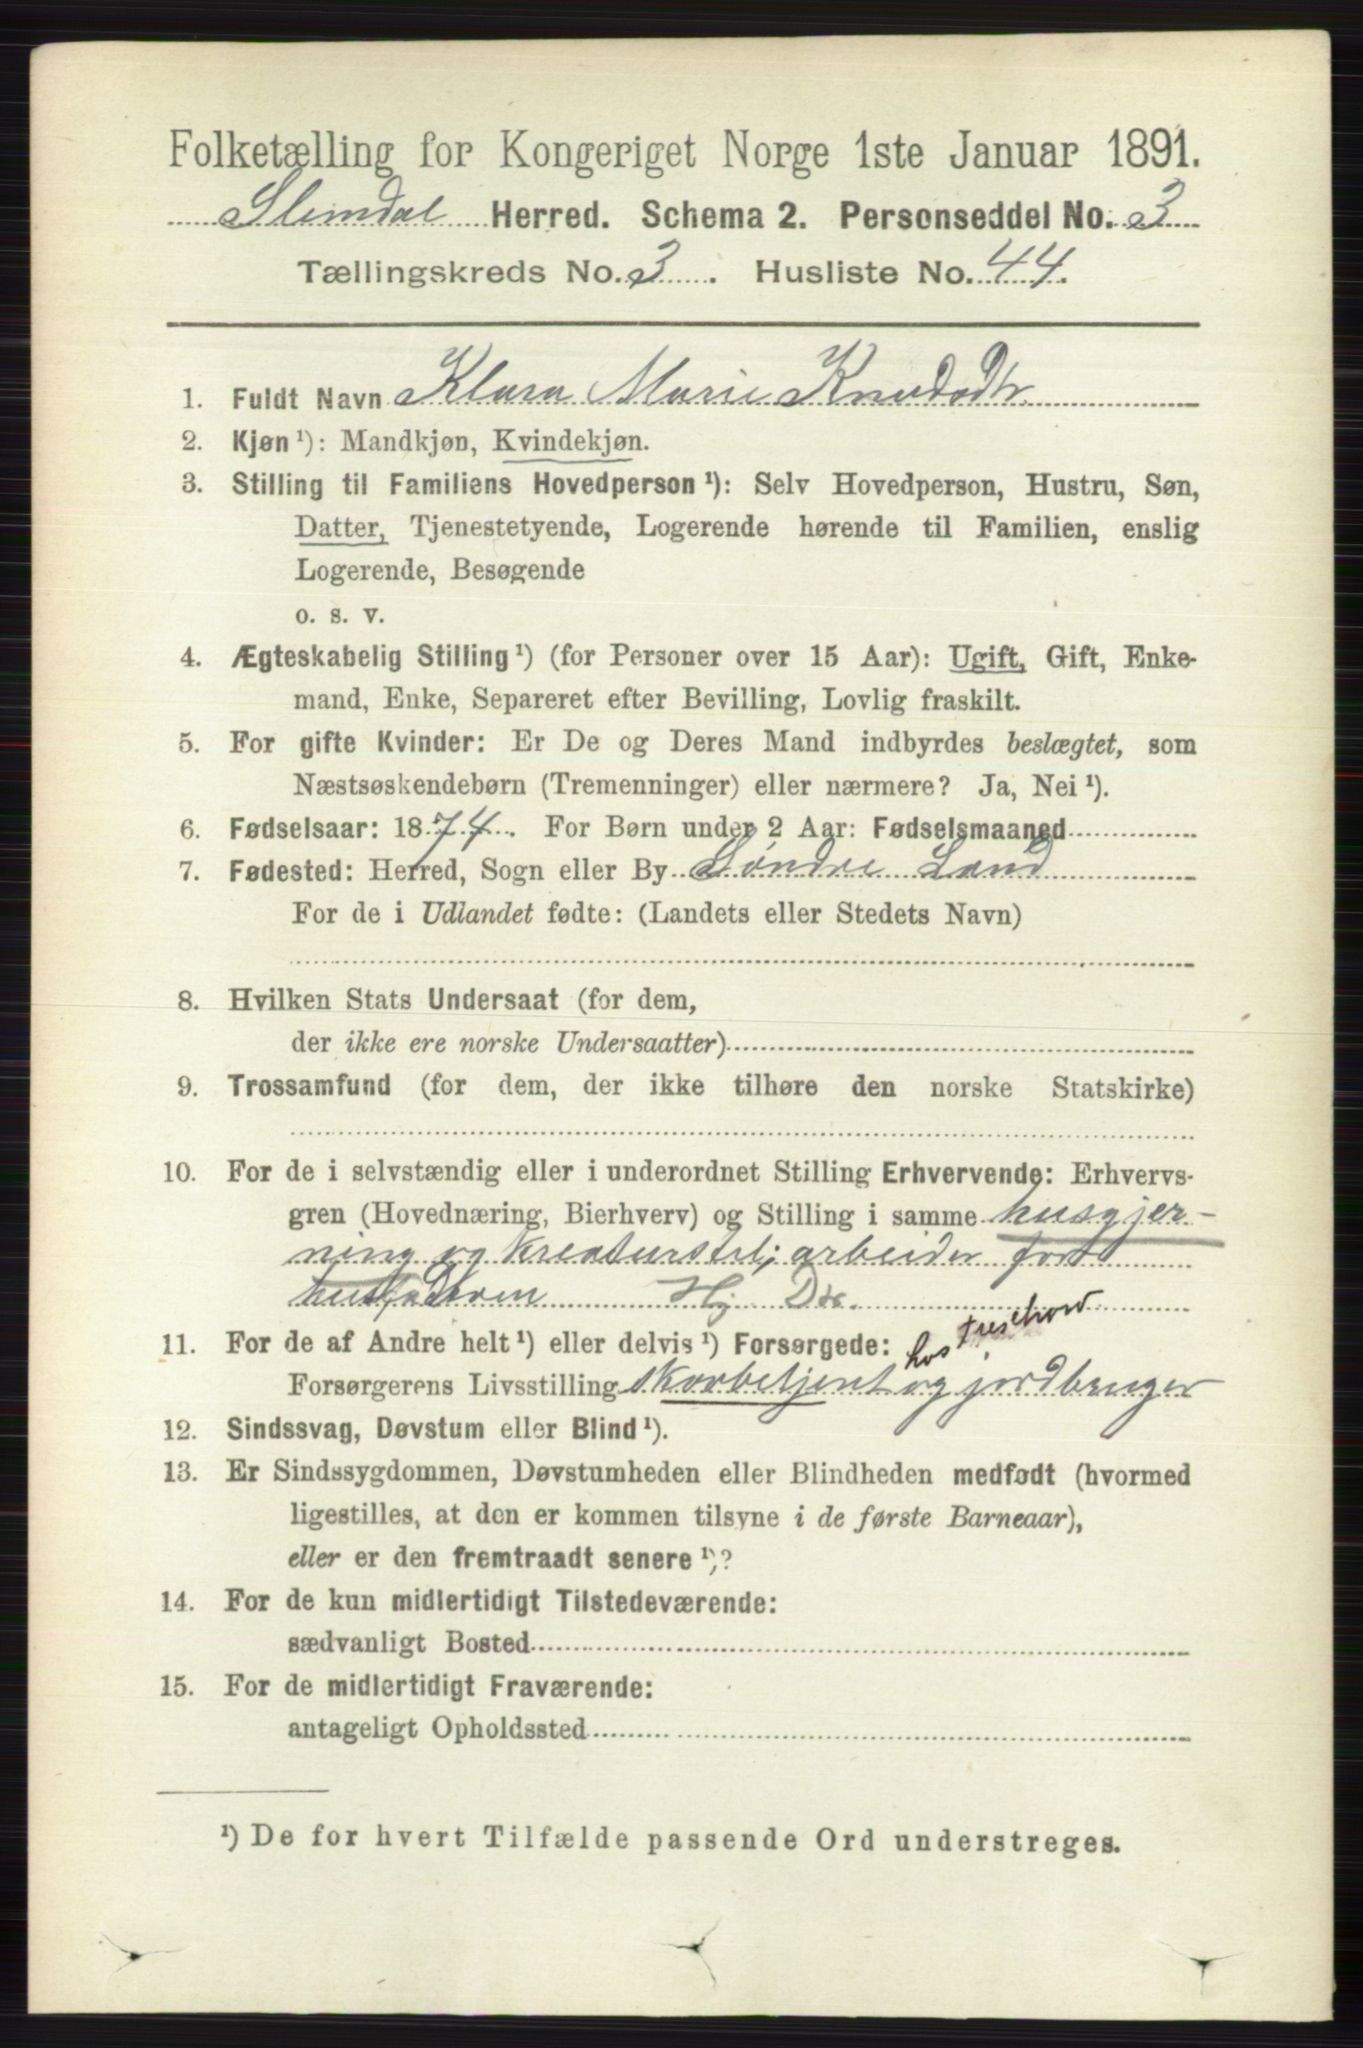 Folketælling for Kongeriget Norge 1ste Januar 1891.
Slemdal Herred. Schema 2. Personseddel No. 3
Tællingskreds No. 3. Husliste No. 44.
1. Fuldt Navn Klara Marie Knudsdtr.
2. Kjøn ¹): Mandkjøn, Kvindekjøn.
3. Stilling til Familiens Hovedperson ¹): Selv Hovedperson, Hustru, Søn,
Datter, Tjenestetyende, Logerende hørende til Familien, enslig
Logerende, Besøgende
o. s. v.
4. Ægteskabelig Stilling ¹) (for Personer over 15 Aar): Ugift, Gift, Enke-
mand, Enke, Separeret efter Bevilling, Lovlig fraskilt.
5. For gifte Kvinder: Er De og Deres Mand indbyrdes beslægtet, som
Næstsøskendebørn (Tremenninger) eller nærmere? Ja, Nei ¹).
6. Fødselsaar: 1874. For Børn under 2 Aar: Fødselsmaaned
7. Fødested: Herred, Sogn eller By Søndre Land
For de i Udlandet fødte: (Landets eller Stedets Navn)
8. Hvilken Stats Undersaat (for dem,
der ikke ere norske Undersaatter)
9. Trossamfund (for dem, der ikke tilhøre den norske Statskirke)
10. For de i selvstændig eller i underordnet Stilling Erhvervende: Erhvervs-
gren (Hovednæring, Bierhverv) og Stilling i samme husgjer-
ning og kreaturstel; arbeider for
husfaderen Hj Dtr.
11. For de af Andre helt ¹) eller delvis ¹) Forsørgede:
hos Treschow
Forsørgerens Livsstilling skovbetjent og jordbruger
12. Sindssvag, Døvstum eller Blind ¹).
13. Er Sindssygdommen, Døvstumheden eller Blindheden medfødt (hvormed
ligestilles, at den er kommen tilsyne i de første Barneaar),
eller er den fremtraadt senere ¹)?
14. For de kun midlertidigt Tilstedeværende:
sædvanligt Bosted
15. For de midlertidigt Fraværende:
antageligt Opholdssted
¹) De for hvert Tilfælde passende Ord understreges.